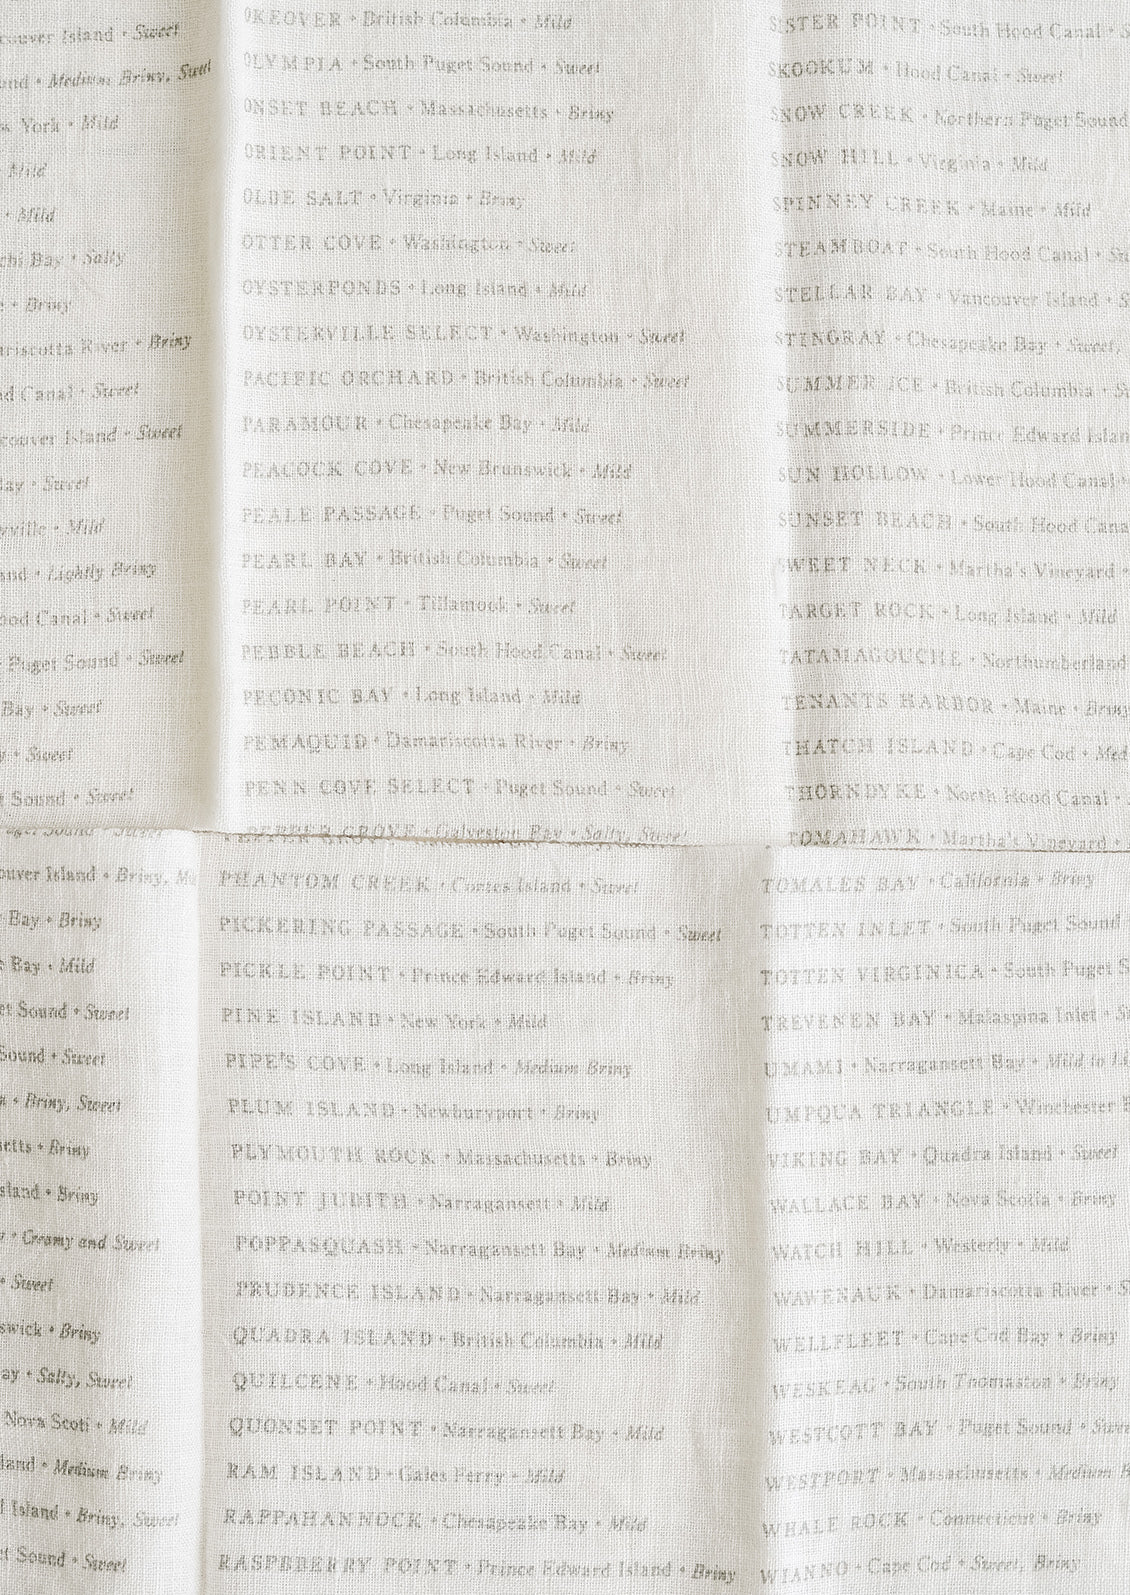 couver Island • Sweet
und • Medium Briny, Sweet
York • Mild
• Mild
• Mild
chi Bay • Salty
• Briny
ariscotta River • Briny
d Canal • Sweet
couver Island • Sweet
ay • Sweet
yville • Mild
and • Lightly Briny
ood Canal • Sweet
Puget Sound • Sweet
Bay • Sweet
• Sweet
Sound • Sweet
uget Sound • Sweet
ouver Island • Briny, M
Bay • Briny
Bay • Mild
et Sound • Sweet
Sound • Sweet
• Briny, Sweet
setts • Briny
sland • Briny
• Creamy and Sweet
• Sweet
swick • Briny
ay • Salty, Sweet
Nova Scoti • Mild
land • Medium Briny
Island • Briny, Sweet
et Sound • Sweet
OKEOVER • British Columbia • Mild
OLYMPIA • South Puget Sound • Sweet
ONSET BEACH • Massachusetts • Briny
ORIENT POINT • Long Island • Mild
OLDE SALT • Virginia • Briny
OTTER COVE • Washington • Sweet
OYSTERPONDS • Long Island • Mild
OYSTERVILLE SELECT • Washington • Sweet
PACIFIC ORCHARD • British Columbia • Sweet
PARAMOUR • Chesapeake Bay • Mild
PEACOCK COVE • New Brunswick • Mild
PEALE PASSAGE • Puget Sound • Sweet
PEARL BAY • British Columbia • Sweet
PEARL POINT • Tillamook • Sweet
PEBBLE BEACH • South Hood Canal • Sweet
PECONIC BAY • Long Island • Mild
PEMAQUID • Damariscotta River • Briny
PENN COVE SELECT • Puget Sound • Sweet
PEPPER GROVE • Galveston Bay • Salty, Sweet
PHANTOM CREEK • Cortes Island • Sweet
PICKERING PASSAGE • South Puget Sound • Sweet
PICKLE POINT • Prince Edward Island • Briny
PINE ISLAND • New York • Mild
PIPE'S COVE • Long Island • Medium Briny
PLUM ISLAND • Newburyport • Briny
PLYMOUTH ROCK • Massachusetts • Briny
POINT JUDITH • Narragansett • Mild
POPPASQUASH • Narragansett Bay • Medium Briny
PRUDENCE ISLAND • Narragansett Bay • Mild
QUADRA ISLAND • British Columbia • Mild
QUILCENE • Hood Canal • Sweet
QUONSET POINT • Narragansett Bay • Mild
RAM ISLAND • Gales Ferry • Mild
RAPPAHANNOCK • Chesapeake Bay • Mild
RASPBERRY POINT • Prince Edward Island • Briny
SISTER POINT • South Hood Canal • S
SKOOKUM • Hood Canal • Sweet
SNOW CREEK • Northern Puget Sound
SNOW HILL • Virginia • Mild
SPINNEY CREEK • Maine • Mild
STEAMBOAT • South Hood Canal • Sw
STELLAR BAY • Vancouver Island • S
STINGRAY • Chesapeake Bay • Sweet,
SUMMER ICE • British Columbia • S
SUMMERSIDE • Prince Edward Islan
SUN HOLLOW • Lower Hood Canal •
SUNSET BEACH • South Hood Cana
SWEET NECK • Martha's Vineyard •
TARGET ROCK • Long Island • Mild
TATAMAGOUCHE • Northumberland
TENANTS HARBOR • Maine • Briny
THATCH ISLAND • Cape Cod • Med
THORNDYKE • North Hood Canal •
TOMAHAWK • Martha's Vineyard •
TOMALES BAY • California • Briny
TOTTEN INLET • South Puget Sound
TOTTEN VIRGINICA • South Puget S
TREVENEN BAY • Malaspina Inlet • S
UMAMI • Narragansett Bay • Mild to Li
UMPQUA TRIANGLE • Winchester B
VIKING BAY • Quadra Island • Sweet
WALLACE BAY • Nova Scotia • Briny
WATCH HILL • Westerly • Mild
WAWENAUK • Damariscotta River • S
WELLFLEET • Cape Cod Bay • Briny
WESKEAG • South Thomaston • Briny
WESTCOTT BAY • Puget Sound • Swee
WESTPORT • Massachusetts • Medium B
WHALE ROCK • Connecticut • Briny
WIANNO • Cape Cod • Sweet, Briny